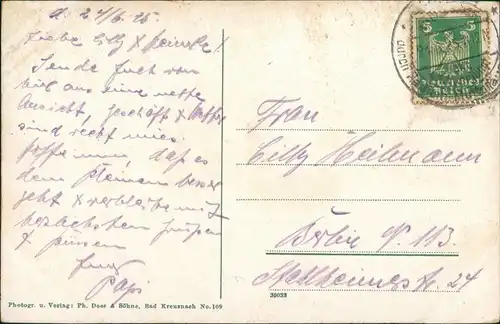 d. 24/6. 25.
Liebe Cilly &
Sende Euch von
hier aus eine nette
Ansicht, Geschäft &
sind recht mies
hoffe nun, daß es
dem Kleinen besser
geht & verbleibe mit
herzlichsten Grüßen
& Küssen
Euer
Papi
Photogr. u. Verlag: Ph. Doss & Söhne, Bad Kreuznach No. 109
5 5
Deutsches
Reich
Frau
Cilly Heilmann
Berlin N. 113.
Str. 24
30023